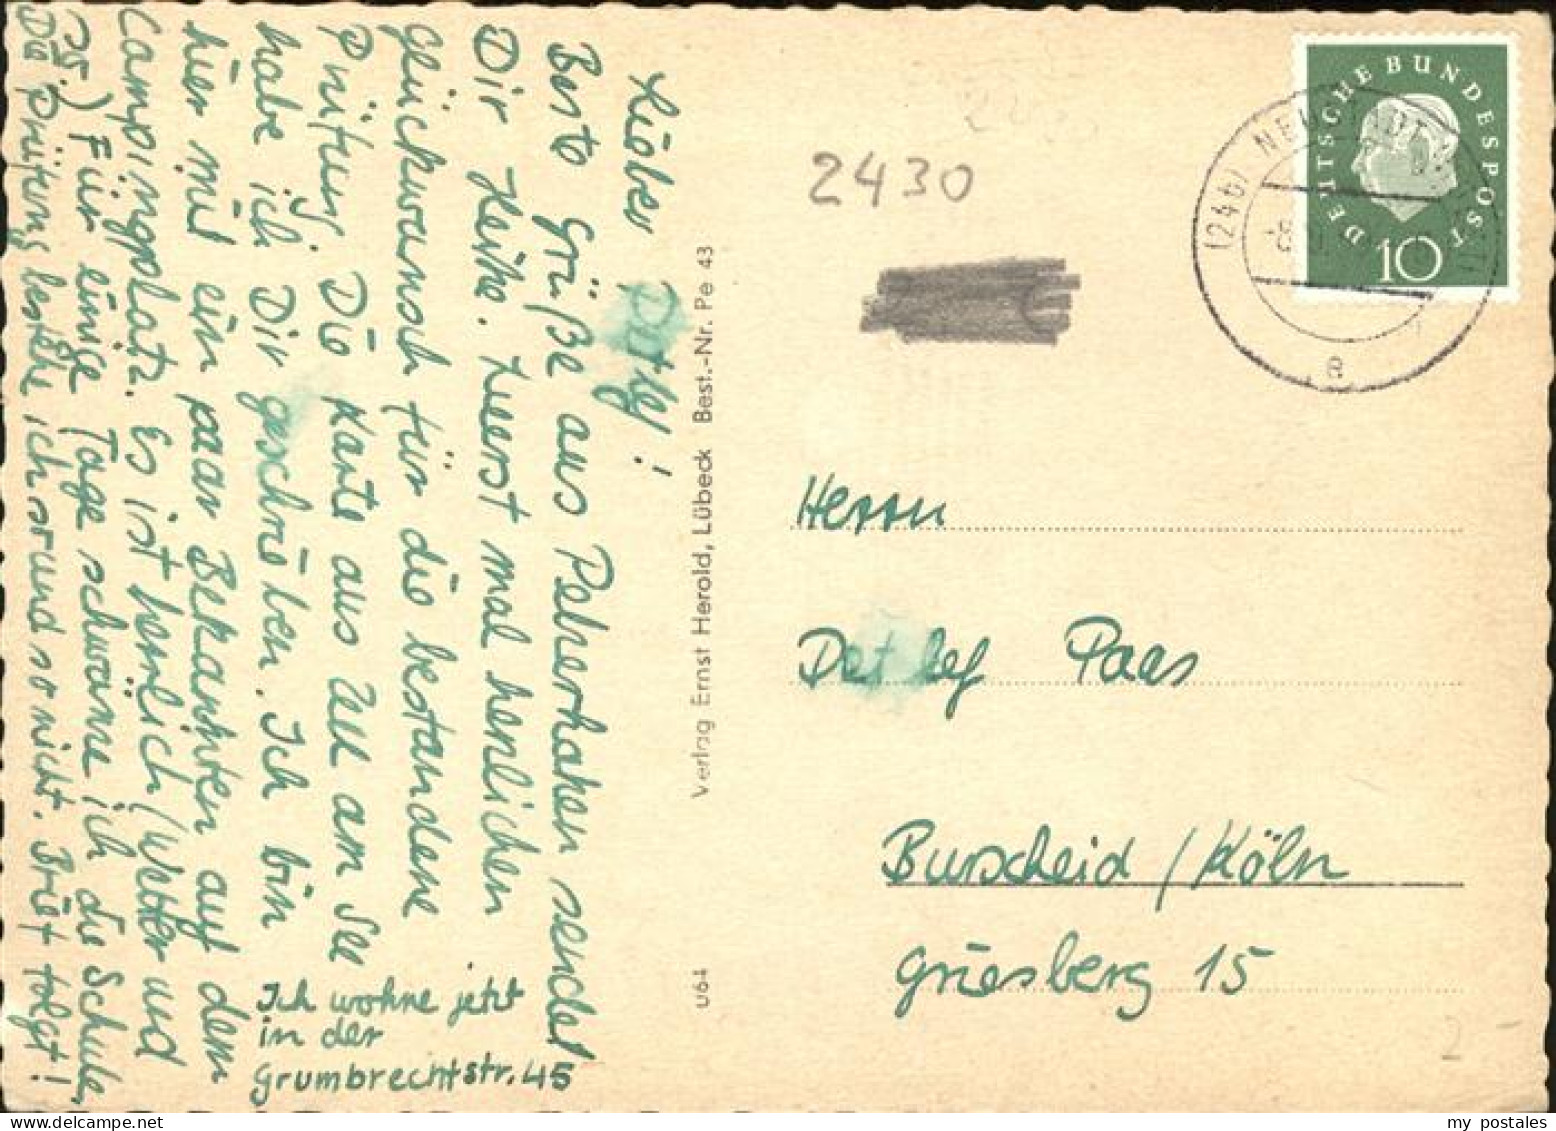 Lieber Detlef!
Beste Grüße aus Pelzerhaken sendet
Dir Heike. Zuerst mal herzlichen
Glückwunsch für die bestandene
Prüfung. Die Karte aus Zell am See
habe ich Dir geschrieben. Ich bin
hier mit ein paar Bekannten auf dem
Campingplatz. Es ist herrlich (Wetter und
) Für einige Tage schwänze ich die Schule,
Die Prüfung bestehe ich so nicht. Brief folgt!
Ich wohne jetzt
in der
Grumbrechtstr. 45
Verlag Ernst Herold, Lübeck Best.-Nr. Pe 43
U64
2430
DEUTSCHE BUNDESPOST
10
(24b) NEUSTADT
a
Herrn
Detlef Paas
Burscheid / Köln
Griesberg 15
2
my postales